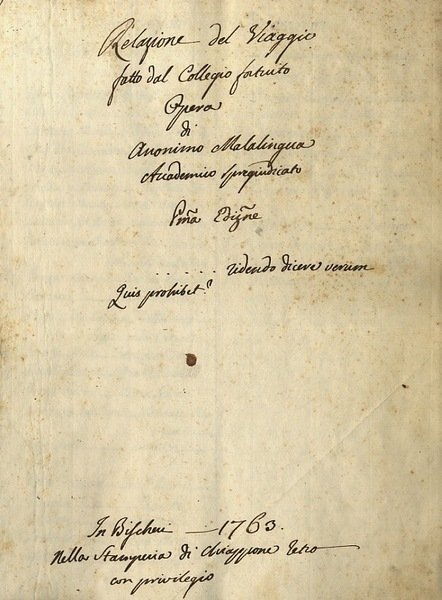 Relazione del Viaggio
fatto dal Collegio fortuito
Opera
di
Anonimo Malalingua
Accademico spregiudicato
Pma Edizne
. . . . . . ridendo dicere verum
Quis prohibet?
In Bischeri — 1763.
Nella Stamperia di Chiappione Tetro
con privilegio